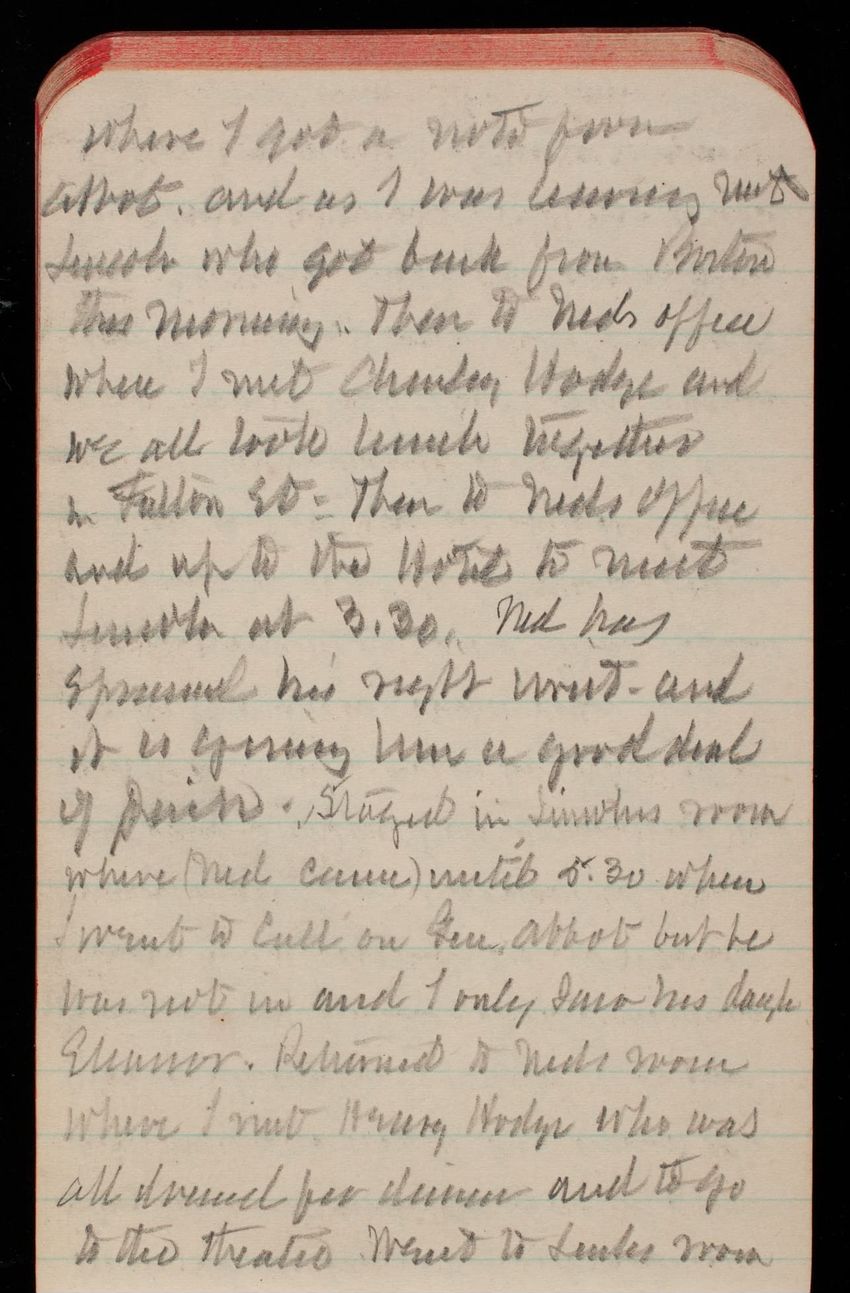 where I got a note from
Abbot. and as I was leaving met
Lincoln who got back from Boston
this morning. Then to Neds office
where I met Charley Hodge and
we all took lunch together
in Fulton St = Then to Neds office
and up to the Hotel to meet
Lincoln at 3.30. Ned has
sprained his right wrist - and
it is giving him a good deal
of pain. Stayed in Lincolns room
where (Ned came) until 5.30 when
I went to call on Gen. Abbot but he
was not in and I only saw his daugh
Eleanor. Returned to Neds room
where I met Henry Hodge who was
all dressed for dinner and to go
to the theatre Went to room